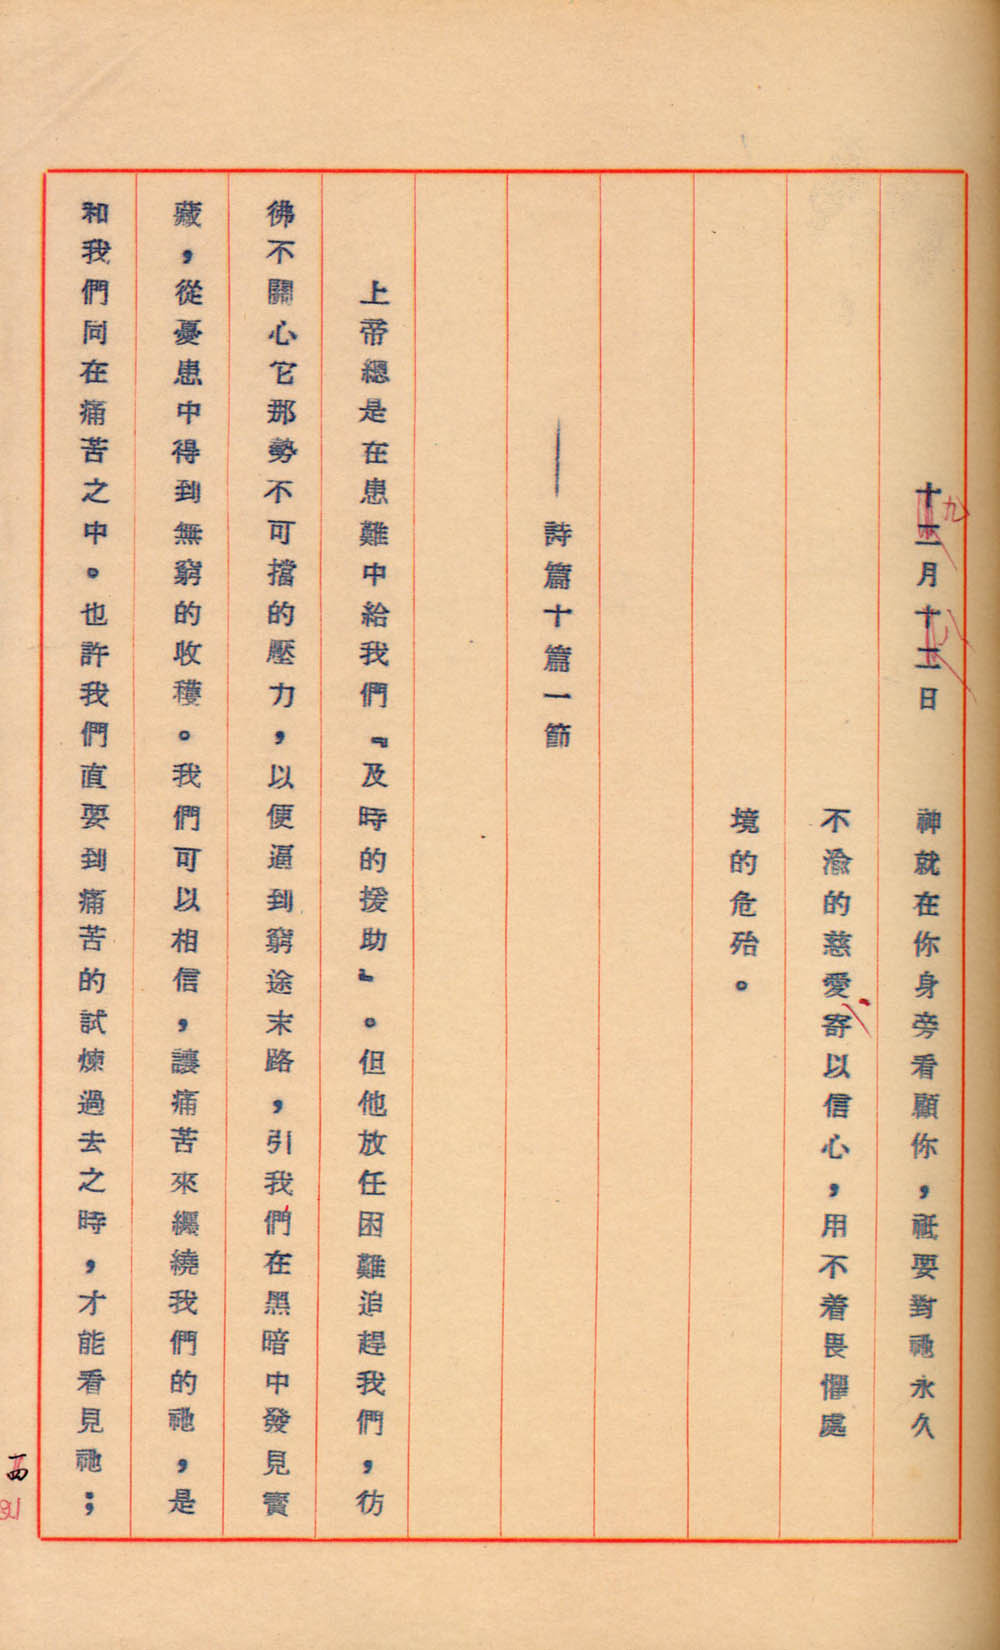 十二月十二日　神就在你身旁看顧你，祗要對祂永久
不渝的慈愛寄以信心，用不着畏懼處
境的危殆。
——詩篇十篇一節
上帝總是在患難中給我們『及時的援助』。但他放任困難追趕我們，彷
彿不關心它那勢不可擋的壓力，以便逼到窮途末路，引我們在黑暗中發見寳
藏，從憂患中得到無窮的收穫。我們可以相信，讓痛苦來纒繞我們的祂，是
和我們同在痛苦之中。也許我們直要到痛苦的試煉過去之時，才能看見祂；
九
八